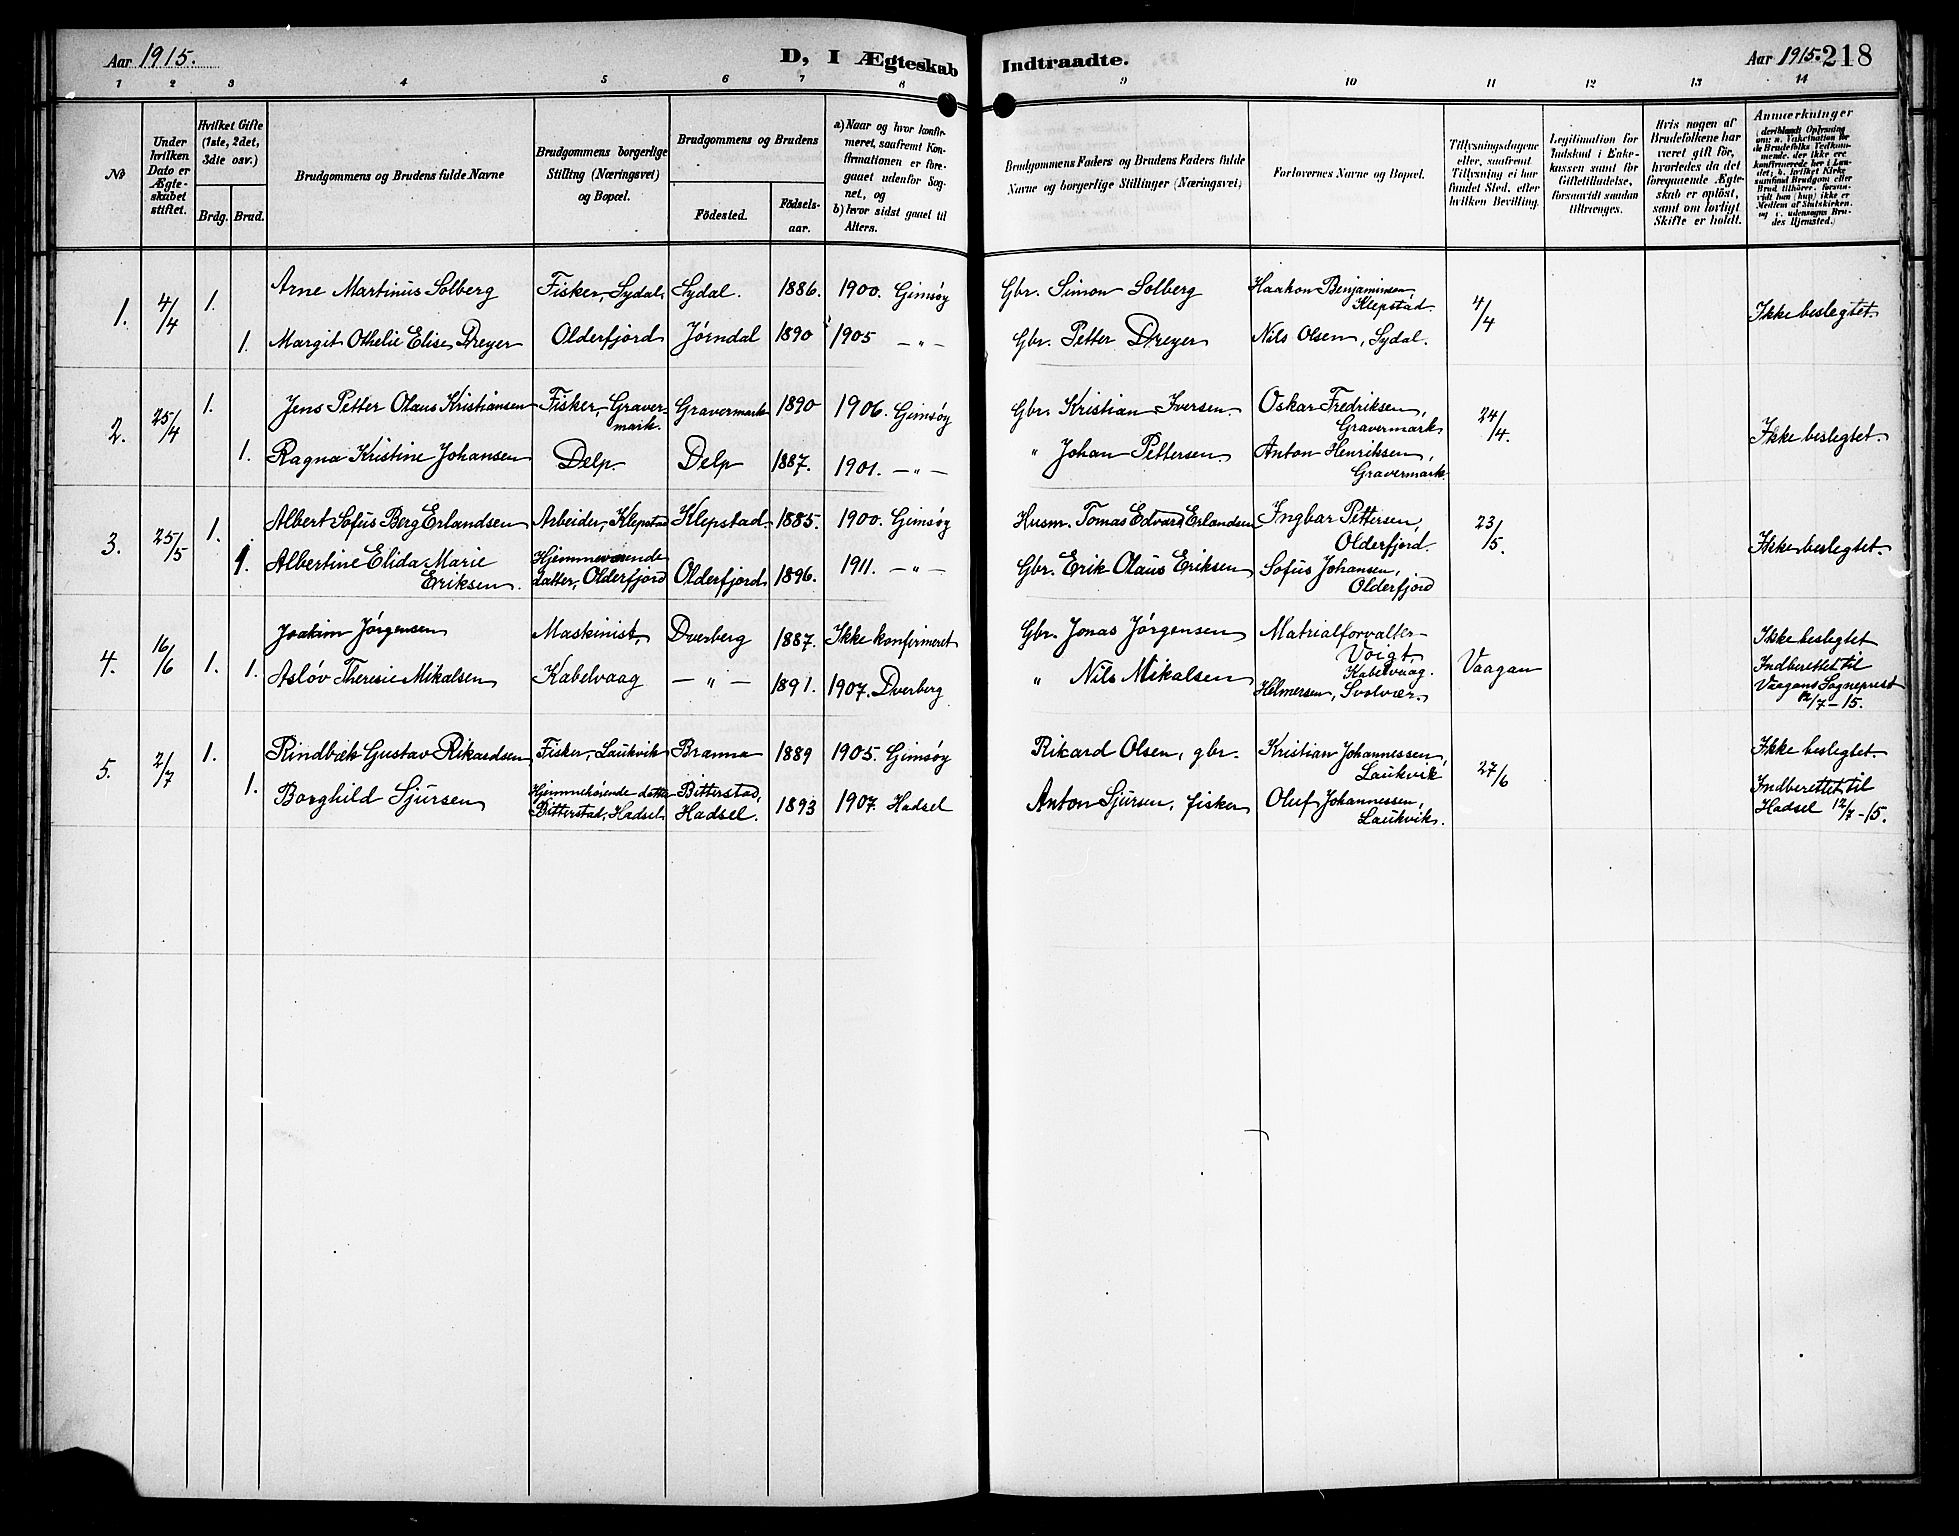 Aar 1915.
D, I Ægteskab
Indtraadte.
Aar 1915. 218
1 2 3 4 5 6 7 8 9 10 11 12 13 14
No
Under hvilken Dato er Ægteskabet stiftet.
Hvilket Gifte (1ste, 2det, 3die osv.)
Brdg. Brud.
Brudgommens og Brudens fulde Navne
Brudgommens borgerlige Stilling (Næringsvei) og Bopæl.
Brudgommens og Brudens
Födested.
Födsels-aar.
a) Naar og hvor konfirmeret, saafremt Konfirmationen er foregaaet udenfor Sognet, og
b) hvor sidst gaaet til Alters.
Brudgommens Faders og Brudens Faders fulde Navne og borgerlige Stillinger (Næringsvei)
Forlovernes Navne og Bopæl.
Tillysningsdagene eller, saafremt Tillysning ei har fundet Sted, efter hvilken Bevilling.
Legitimation for Indskud i Enkekassen samt for Giftetilladelse, forsaavidt saadan tiltrænges.
Hvis nogen af Brudefolkene har været gift för, hvorledes da det foregaaende Ægteskab er oplöst, samt om lovligt Skifte er holdt.
Anmærkninger
(deriblandt Oplysning om: a. Vakcination for de Brudefolks Vedkommende, der ikke ere konfirmerede her i Landet; b. hvilket Kirkesamfund Brudgom eller Brud tilhörer, forsaavidt han (hun) ikke er Medlem af Statskirken, og c. udensogns Brudes Hjemsted.)
1. 4/4 1. Arne Martinus Solberg Fisker, Sydal. Sydal. 1886. 1900. Gimsøy Gbr. Simon Solberg Haakon Benjaminsen Klepstad. 4/4 Ikke beslegtet.
1. Margit Othelie Elise Dreyer Olderfjord Jørndal 1890 1905 — " — Gbr. Petter Dreyer Nils Olsen, Sydal.
2. 25/4 1. Jens Petter Olaus Kristiansen Fisker, Gravermark. Gravermark 1890 1906. Gimsøy Gbr. Kristian Iversen. Oskar Fredriksen, Gravermark 24/4. Ikke beslegtet.
1. Ragna Kristine Johansen Delp Delp 1887. 1901. — " — " Johan Pettersen. Anton Henriksen, Gravermark.
3. 25/5 1. Albert Sofus Berg Erlandsen Arbeider, Klepstad Klepstad. 1885. 1900. Gimsøy Husm. Tomas Edvard Erlandsen Ingbar Pettersen, Olderfjord. 23/5. Ikke beslegtet.
1. Albertine Elida Marie Eriksen. Hjemmeværende datter, Olderfjord Olderfjord 1896. 1911. — " — Gbr. Erik Olaus Eriksen Sofus Johansen, Olderfjord
4. 16/6 1. Joakim Jørgensen Maskinist, Dverberg 1887. Ikke konfirmeret Gbr. Jonas Jørgensen Matrialforvalter Voigt, Kabelvaag. Vaagan Ikke beslegtet
1. Asløv Theresie Mikalsen Kabelvaag — " — 1891. 1907. Dverberg " Nils Mikalsen Helmersen, Svolvær. Indberettet til Vaagans Sogneprest 12/7 - 15.
5. 2/7 1. Rindbæk Gustav Rikardsen Fisker, Laukvik Branna 1889 1905. Gimsøy Rikard Olsen, gbr. Kristian Johannessen, Laukvik 27/6 Ikke beslegtet
1. Borghild Sjursen Bitterstad, Hadsel Bitterstad, Hadsel. 1893 1907. Hadsel Anton Sjursen, fisker Oluf Johannessen, Laukvik. Indberettet til Hadsel 12/7 - 15.